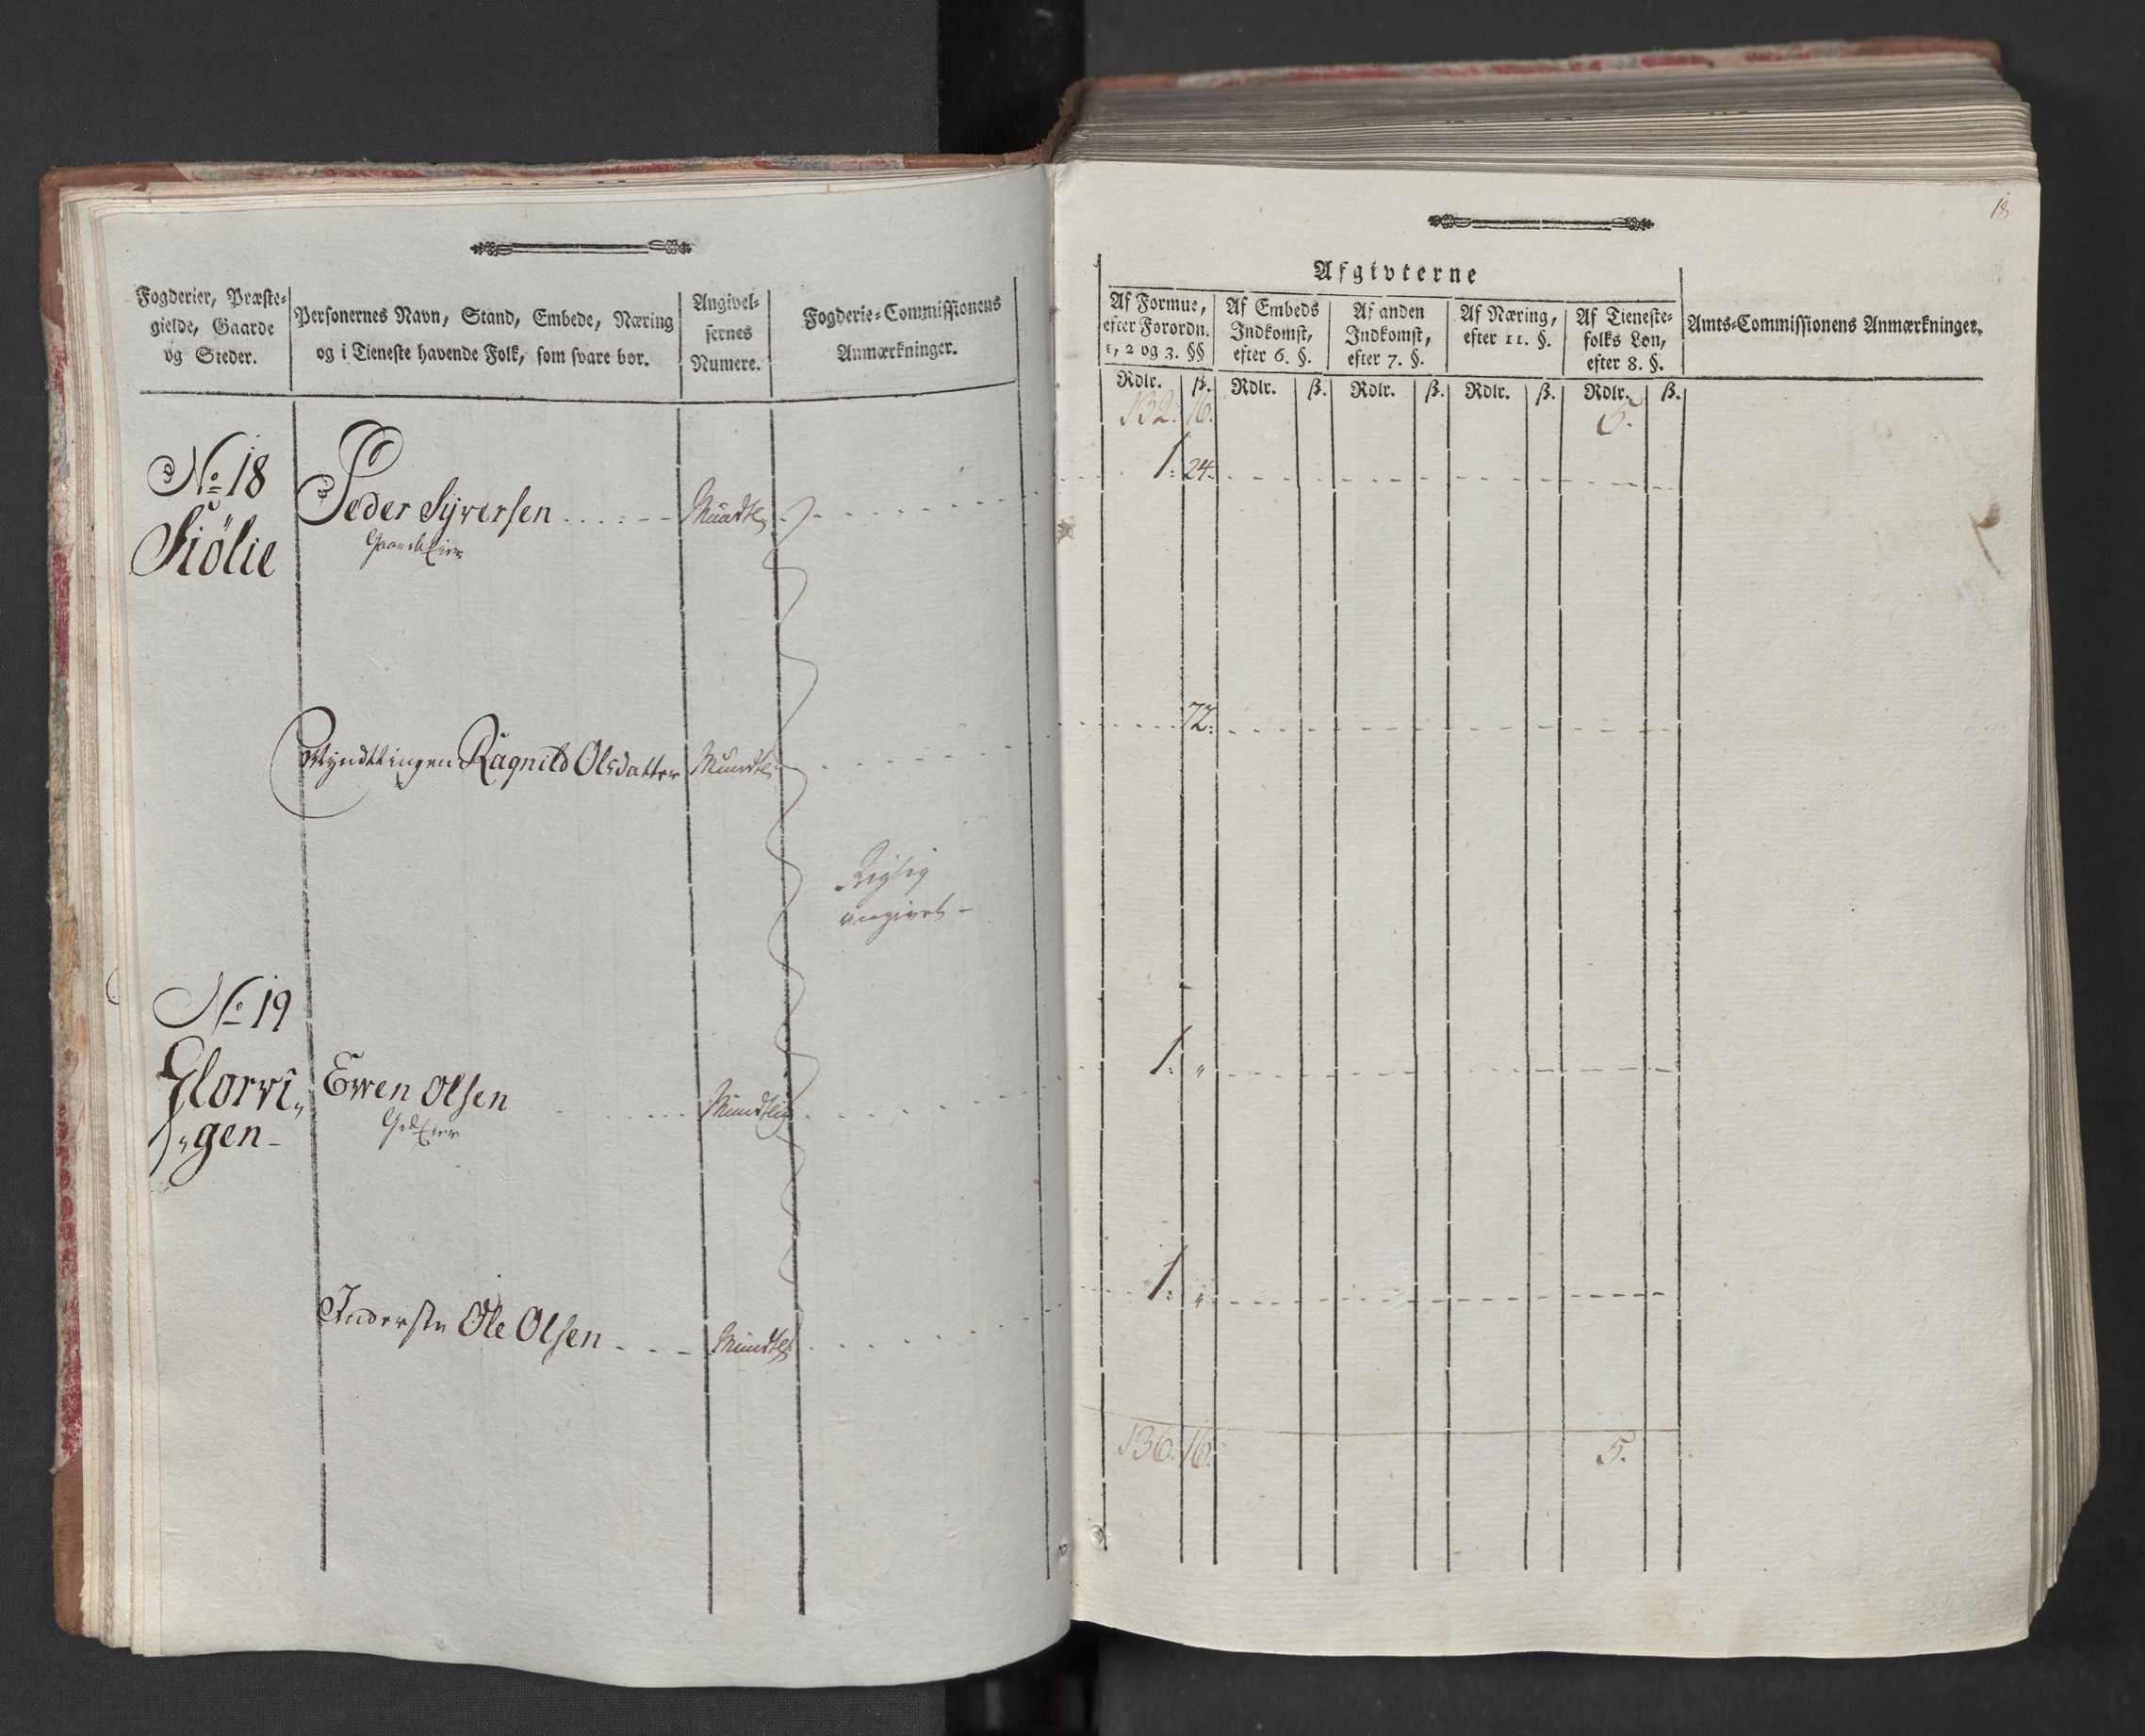 Fogderier, Præste-
gielde, Gaarde
og Steder.
Personernes Navn, Stand, Embede, Næring
og i Tieneste havende Folk, som svare bør.
Angivel-
sernes
Numere.
Fogderie-Commissionens
Anmærkninger.
No 18
Siölie
Peder Syversen
Gaardeier
Mundtlig
Myndtlingen Ragnild Olsdatter
Mundtlig
Rigtig
angivet -
No 19
Glorvi„
„gen-
Even Olsen
Gdeier
Mundtlig
Inderste Ole Olsen
Mundtlig
18
Afgivterne
Af Formue,
efter Forordn.
1, 2 og 3. §§
Af Embeds
Indkomst,
efter 6. §.
Af anden
Indkomst,
efter 7. §.
Af Næring,
efter 11. §.
Af Tieneste-
folks Løn,
efter 8. §.
Amts-Commissionens Anmærkninger.
Rdlr. ß. Rdlr. ß. Rdlr. ß. Rdlr. ß. Rdlr. ß.
132. 16. 5.
1. 24.
72.
1. „
1. „
136. 16. 5.